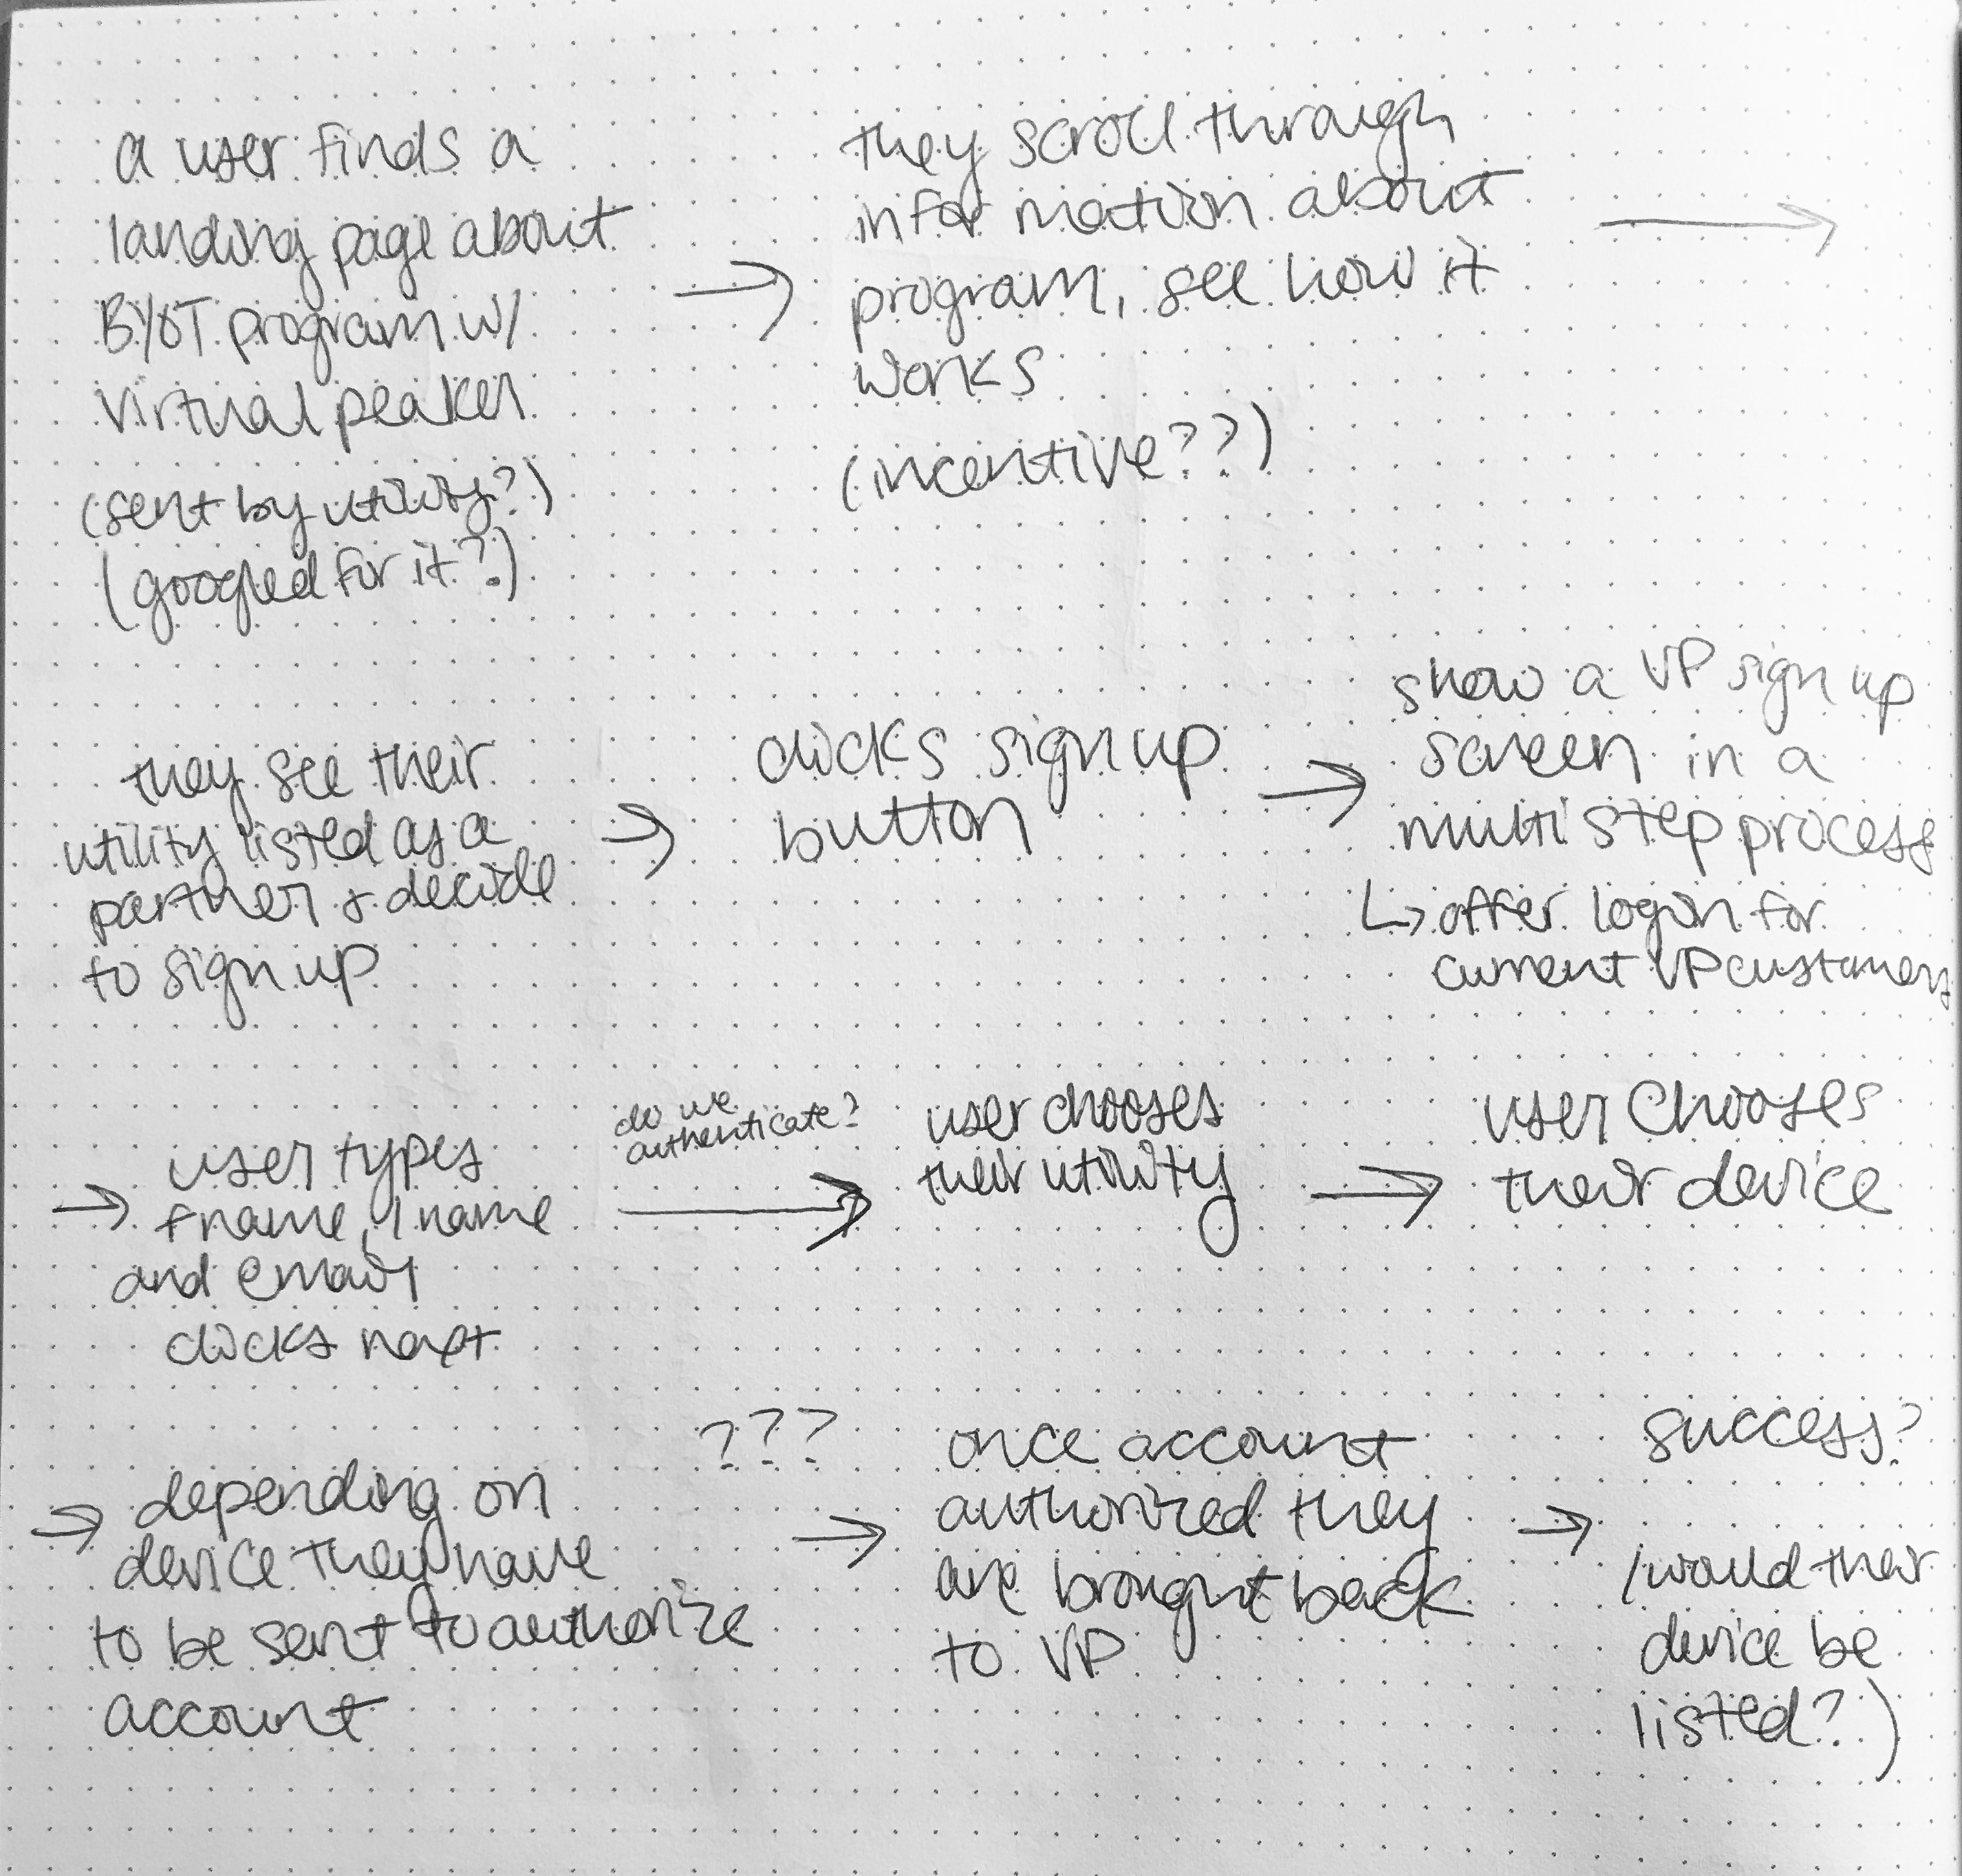 a user finds a
landing page about
BYOT program w/
virtual peaker
(sent by utility?)
(googled for it?)
→
they scroll through
information about
program, see how it
works
(incentive??)
→
they see their
utility listed as a
partner & decide
to sign up
→
clicks sign up
button
→
show a VP sign up
screen in a
multi step process
↳ offer login for
current VP customers
→ user types
fname, lname
and email
clicks next
do we
authenticate?
→
user chooses
their utility
→
user chooses
their device
→ depending on
device they have
to be sent to authorize
account
???
→
once account
authorized they
are brought back
to VP
→
success?
(would their
device be
listed?)